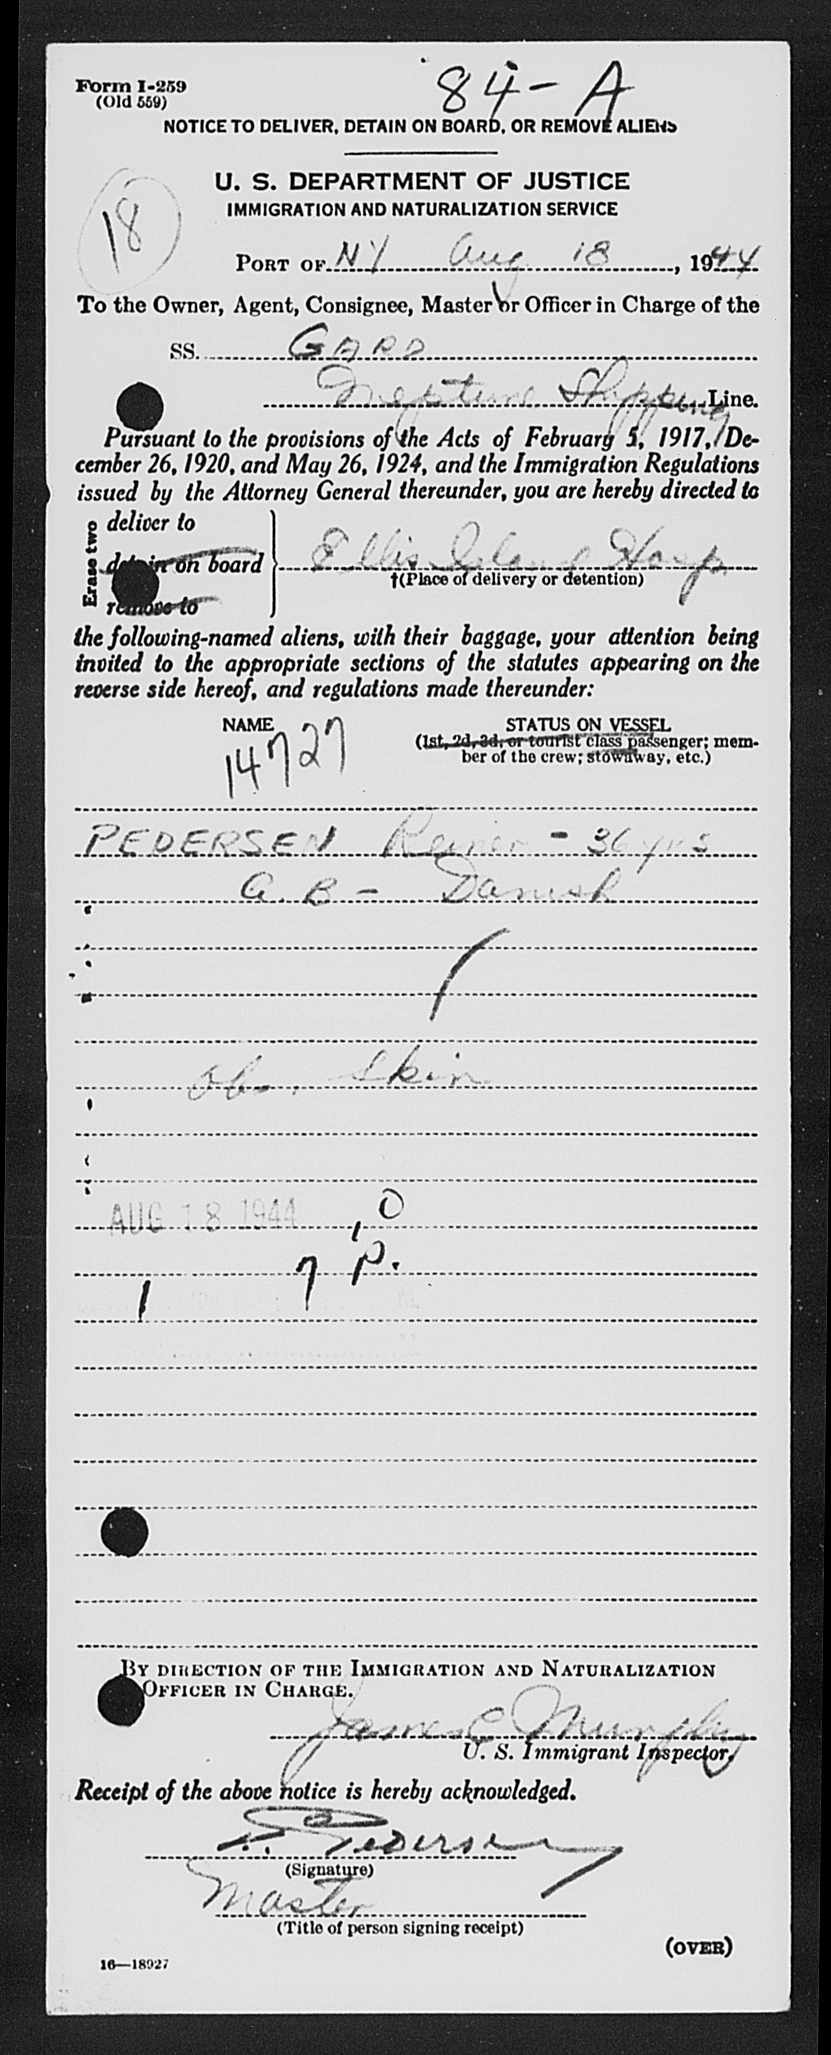 84-A
Form I-259
(Old 559)
NOTICE TO DELIVER, DETAIN ON BOARD, OR REMOVE ALIENS
U. S. DEPARTMENT OF JUSTICE
IMMIGRATION AND NATURALIZATION SERVICE
18
PORT OF NY Aug 18, 1944
To the Owner, Agent, Consignee, Master or Officer in Charge of the
SS. GARD
Neptune Shipping Line.
Pursuant to the provisions of the Acts of February 5, 1917, De-
cember 26, 1920, and May 26, 1924, and the Immigration Regulations
issued by the Attorney General thereunder, you are hereby directed to
Erase two
deliver to
detain on board Ellis Island Hosp
†(Place of delivery or detention)
remove to
the following-named aliens, with their baggage, your attention being
invited to the appropriate sections of the statutes appearing on the
reverse side hereof, and regulations made thereunder:
NAME STATUS ON VESSEL
14727 (1st, 2d, 3d, or tourist class passenger; mem-
ber of the crew; stowaway, etc.)
PEDERSEN Reiner - 36 yrs
A. B - Danish
obs. Skin
AUG 18 1944 , 0
1 7 P.
BY DIRECTION OF THE IMMIGRATION AND NATURALIZATION
OFFICER IN CHARGE.
James Murphy
U. S. Immigrant Inspector,
Receipt of the above notice is hereby acknowledged.
Pedersen
(Signature)
Master
(Title of person signing receipt)
(OVER)
16—18927